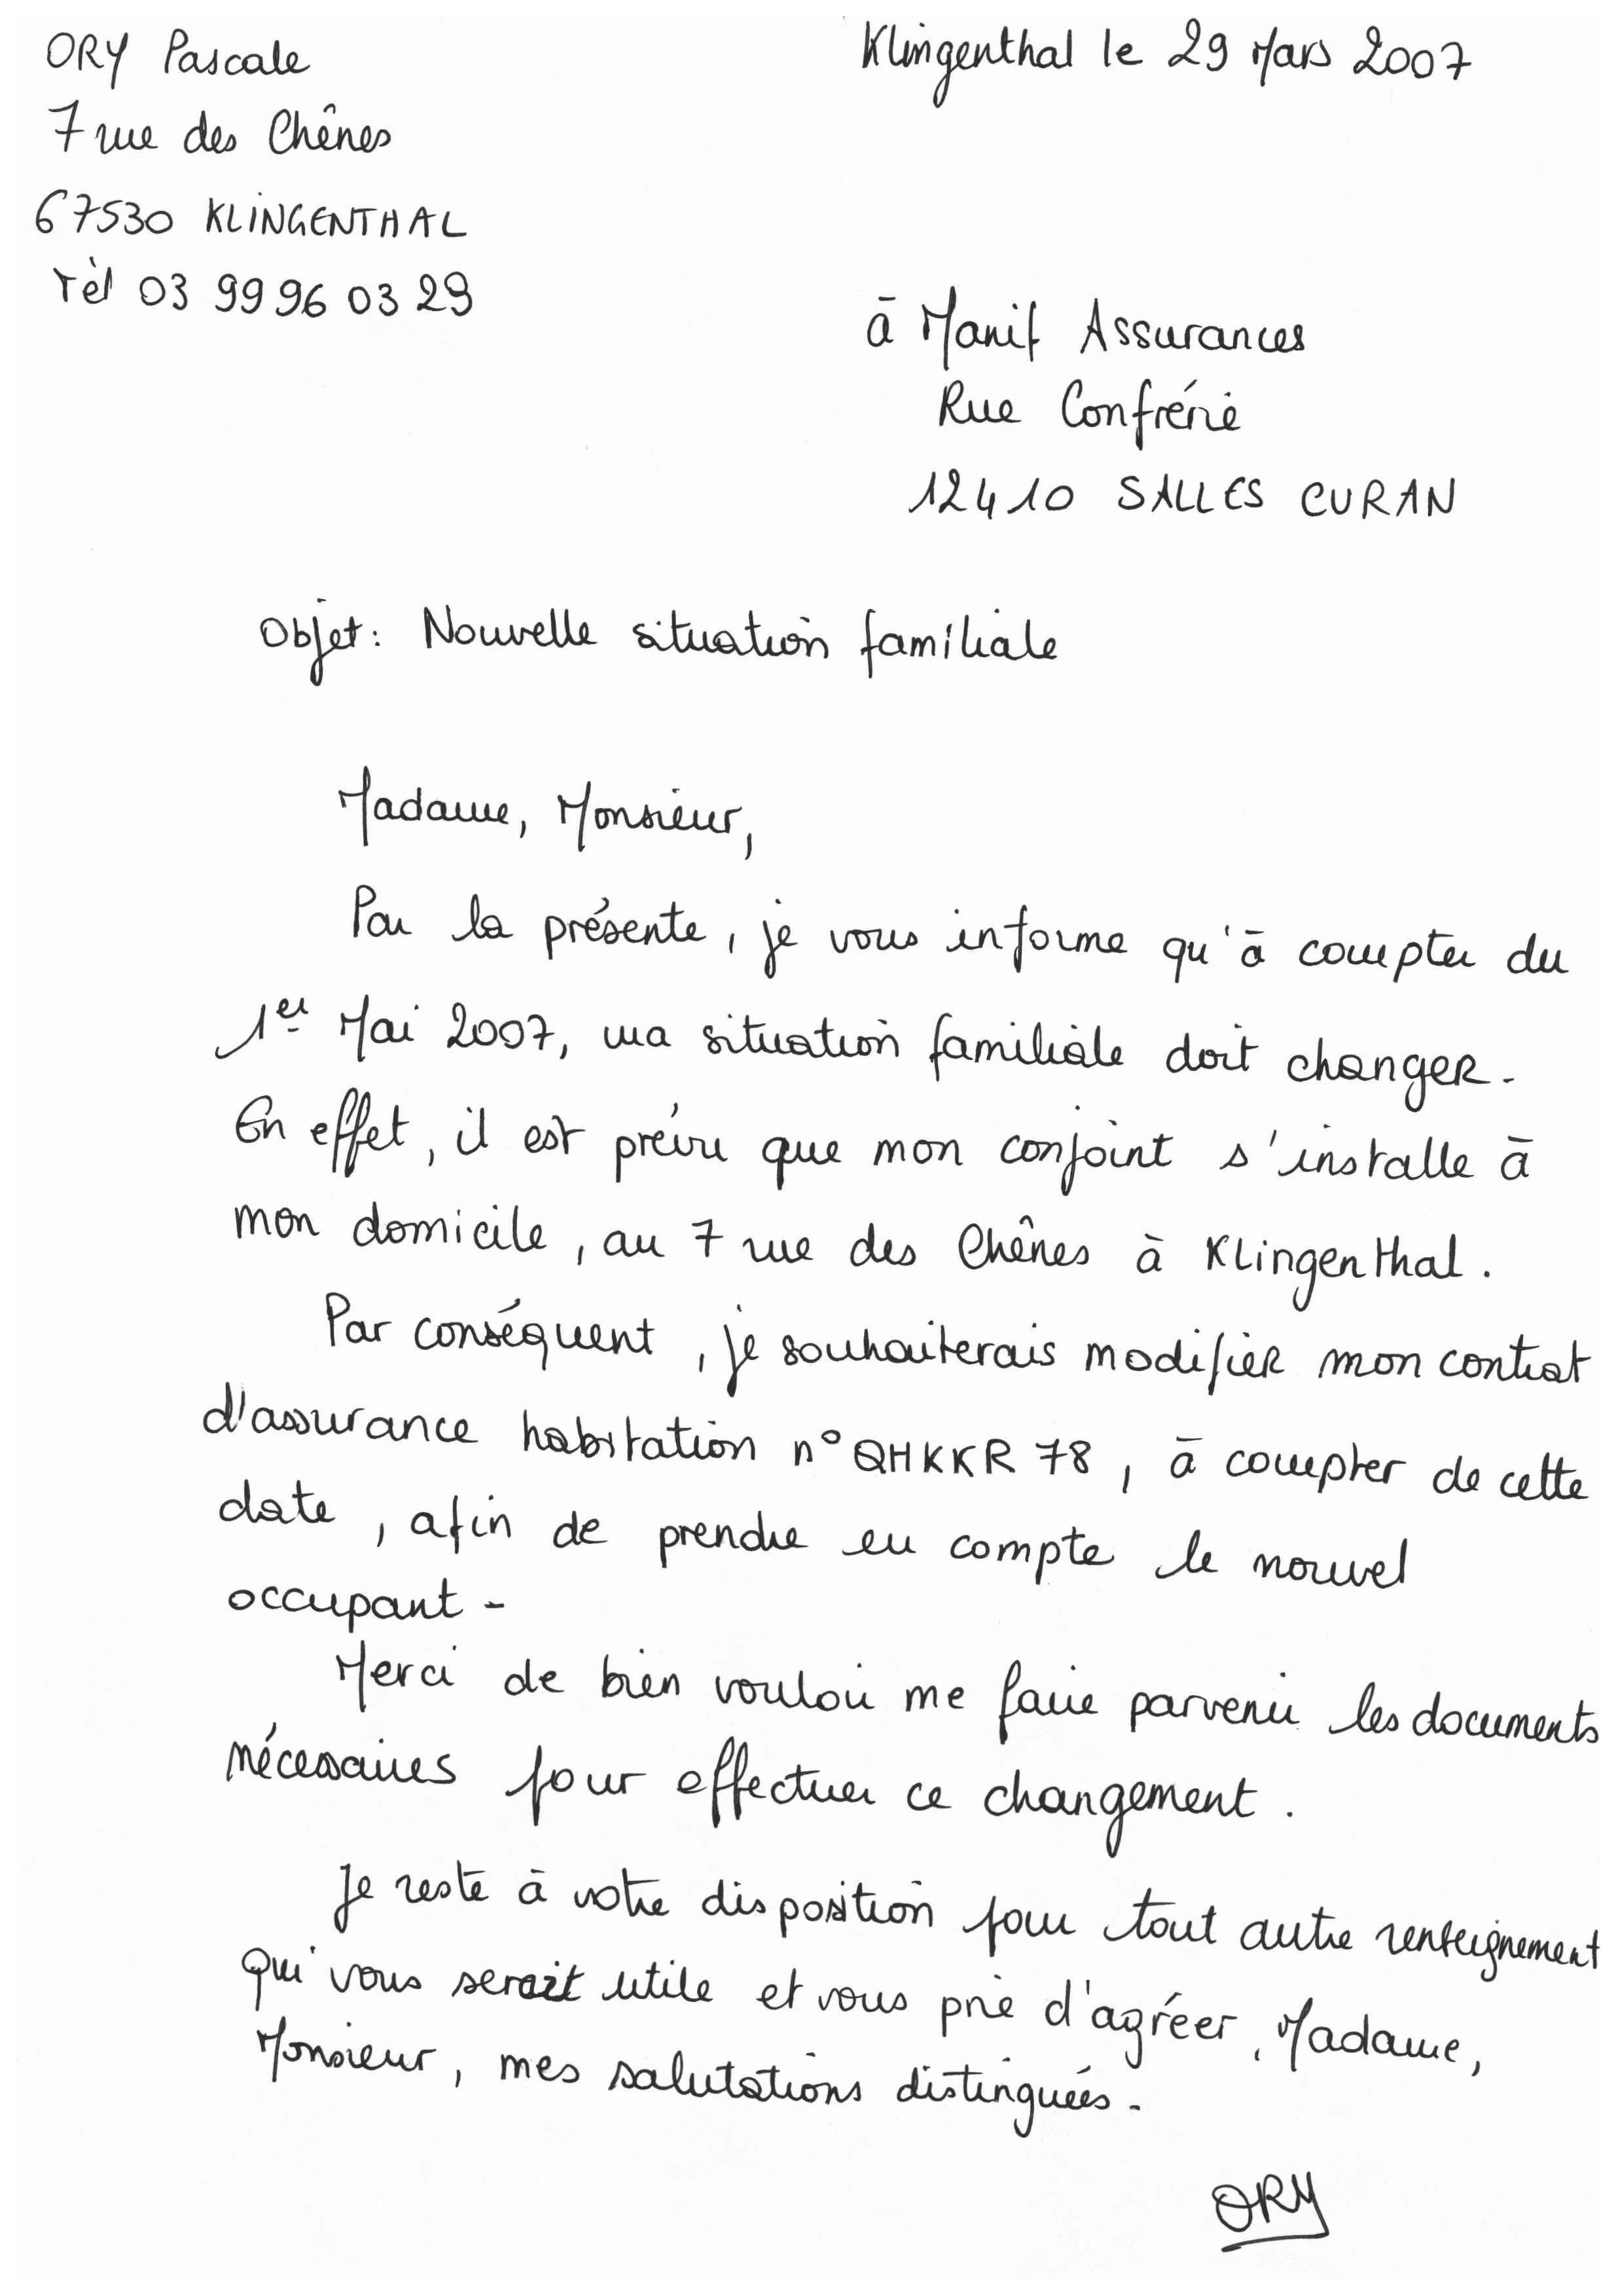 ORY Pascale
Klingenthal le 29 Mars 2007
7 rue des Chênes
67530 KLINGENTHAL
Tèl 03 99 96 03 29
à Manif Assurances
Rue Confrérie
12410 SALLES CURAN
Objet : Nouvelle situation familiale
Madame, Monsieur,
Par la présente, je vous informe qu'à compter du
1er Mai 2007, ma situation familiale doit changer.
En effet, il est prévu que mon conjoint s'installe à
mon domicile, au 7 rue des Chênes à Klingenthal.
Par conséquent, je souhaiterais modifier mon contrat
d'assurance habitation n° QHKKR 78, à compter de cette
date, afin de prendre en compte le nouvel
occupant -
Merci de bien vouloir me faire parvenir les documents
nécessaires pour effectuer ce changement.
Je reste à votre disposition pour tout autre renseignement
qui vous serait utile et vous prie d'agréer, Madame,
Monsieur, mes salutations distinguées -
ORY